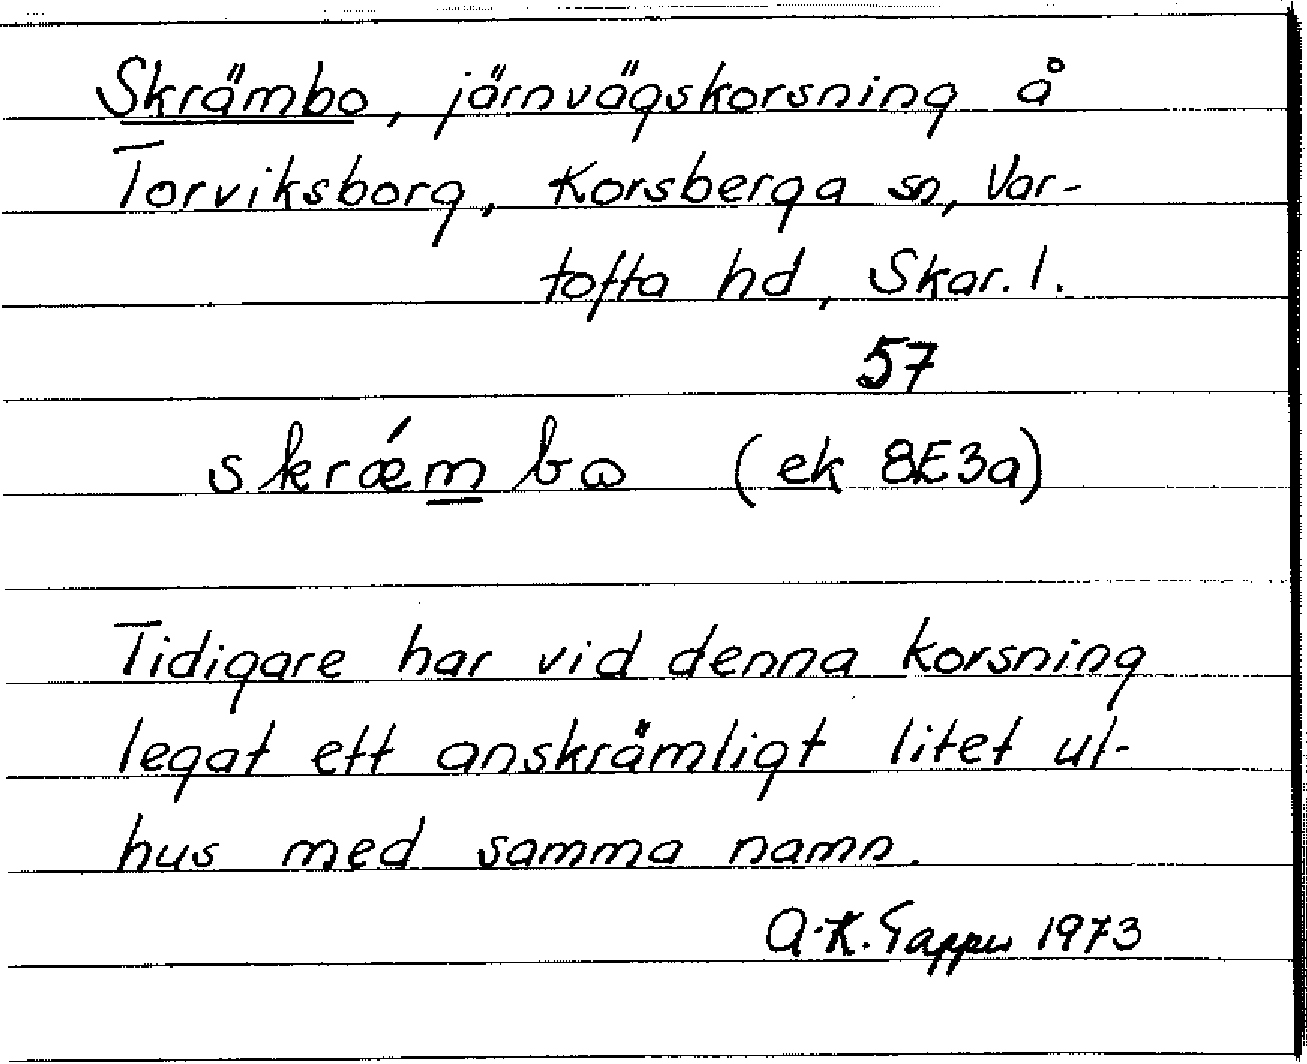 Skrämbo, järnvägskorsning å
Torviksborg, Korsberga sn, Var-
tofta hd, Skar. l.
57
skrǽmbω (ek 8E3a)
Tidigare har vid denna korsning
legat ett anskrämligt litet ut-
hus med samma namn.
A-K. Tapper 1973